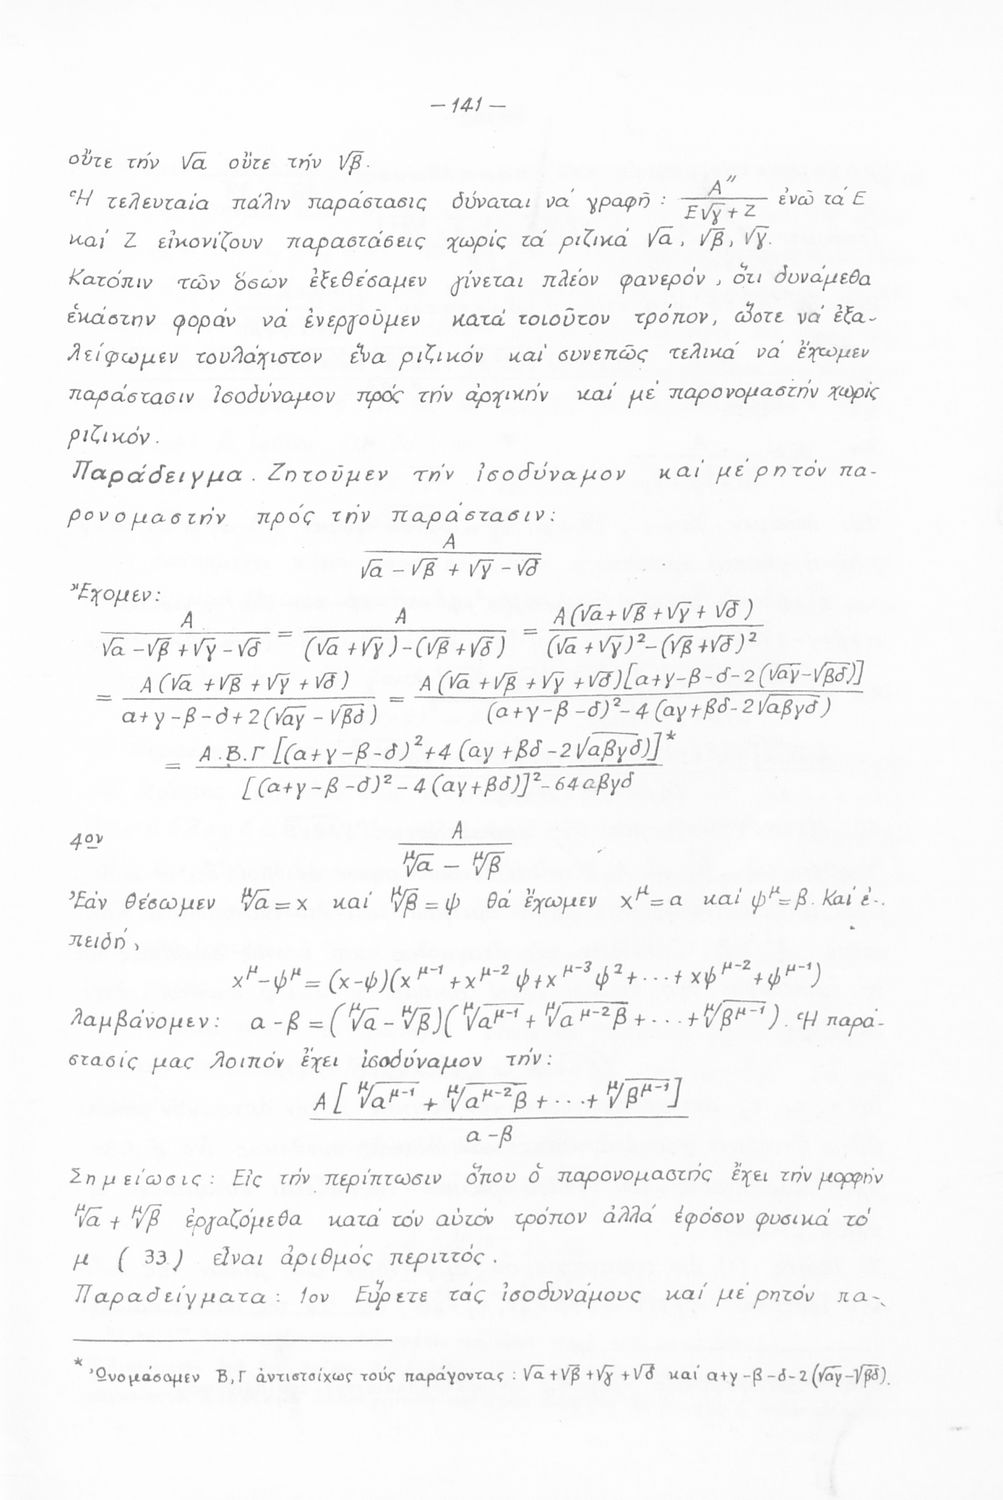 — 141 —
οὔτε τήν √α οὔτε τήν √β.
Ἡ τελευταία πάλιν παράστασις δύναται νά γραφῆ : Α″/(Ε√γ + Ζ) ἐνῶ τά Ε
καί Ζ εἰκονίζουν παραστάσεις χωρίς τά ριζικά √α, √β, √γ.
Κατόπιν τῶν ὅσων ἐξεθέσαμεν γίνεται πλέον φανερόν, ὅτι δυνάμεθα
ἑκάστην φοράν νά ἐνεργοῦμεν κατά τοιοῦτον τρόπον, ὥστε νά ἐξα-
λείφωμεν τουλάχιστον ἕνα ριζικόν καί συνεπῶς τελικά νά ἔχωμεν
παράστασιν ἰσοδύναμον πρός τήν ἀρχικήν καί μέ παρονομαστήν χωρίς
ριζικόν.
Παράδειγμα. Ζητοῦμεν τήν ἰσοδύναμον καί μέ ρητόν πα-
ρονομαστήν πρός τήν παράστασιν:
Α/(√α - √β + √γ - √δ)
Ἔχομεν:
Α/(√α - √β + √γ - √δ) = Α/((√α + √γ) - (√β + √δ)) = Α(√α + √β + √γ + √δ)/((√α + √γ)² - (√β + √δ)²)
= Α(√α + √β + √γ + √δ)/(α + γ - β - δ + 2(√αγ - √βδ)) = Α(√α + √β + √γ + √δ)[α + γ - β - δ - 2(√αγ - √βδ)]/((α + γ - β - δ)² - 4(αγ + βδ - 2√αβγδ))
= Α.Β.Γ[(α + γ - β - δ)² + 4(αγ + βδ - 2√αβγδ)]*/([(α + γ - β - δ)² - 4(αγ + βδ)]² - 64αβγδ)
4ον Α/(ᵘ√α - ᵘ√β)
Ἐάν θέσωμεν ᵘ√α = x καί ᵘ√β = ψ θά ἔχωμεν x^μ = α καί ψ^μ = β. Καί ἐ-
πειδή,
x^μ - ψ^μ = (x - ψ)(x^μ-1 + x^μ-2 ψ + x^μ-3 ψ² + ··· + xψ^μ-2 + ψ^μ-1)
λαμβάνομεν: α - β = (ᵘ√α - ᵘ√β)(ᵘ√α^μ-1 + ᵘ√α^μ-2 β + ··· + ᵘ√β^μ-1). Ἡ παρά-
στασίς μας λοιπόν ἔχει ἰσοδύναμον τήν:
Α[ᵘ√α^μ-1 + ᵘ√α^μ-2 β + ··· + ᵘ√β^μ-1]/(α - β)
Σημείωσις: Εἰς τήν περίπτωσιν ὅπου ὁ παρονομαστής ἔχει τήν μορφήν
ᵘ√α + ᵘ√β ἐργαζόμεθα κατά τόν αὐτόν τρόπον ἀλλά ἐφόσον φυσικά τό
μ (33) εἶναι ἀριθμός περιττός.
Παραδείγματα: 1ον Εὕρετε τάς ἰσοδυνάμους καί μέ ρητόν πα-
* Ὠνομάσαμεν Β,Γ ἀντιστοίχως τούς παράγοντας : √α + √β + √γ + √δ καί α+γ-β-δ-2(√αγ-√βδ).